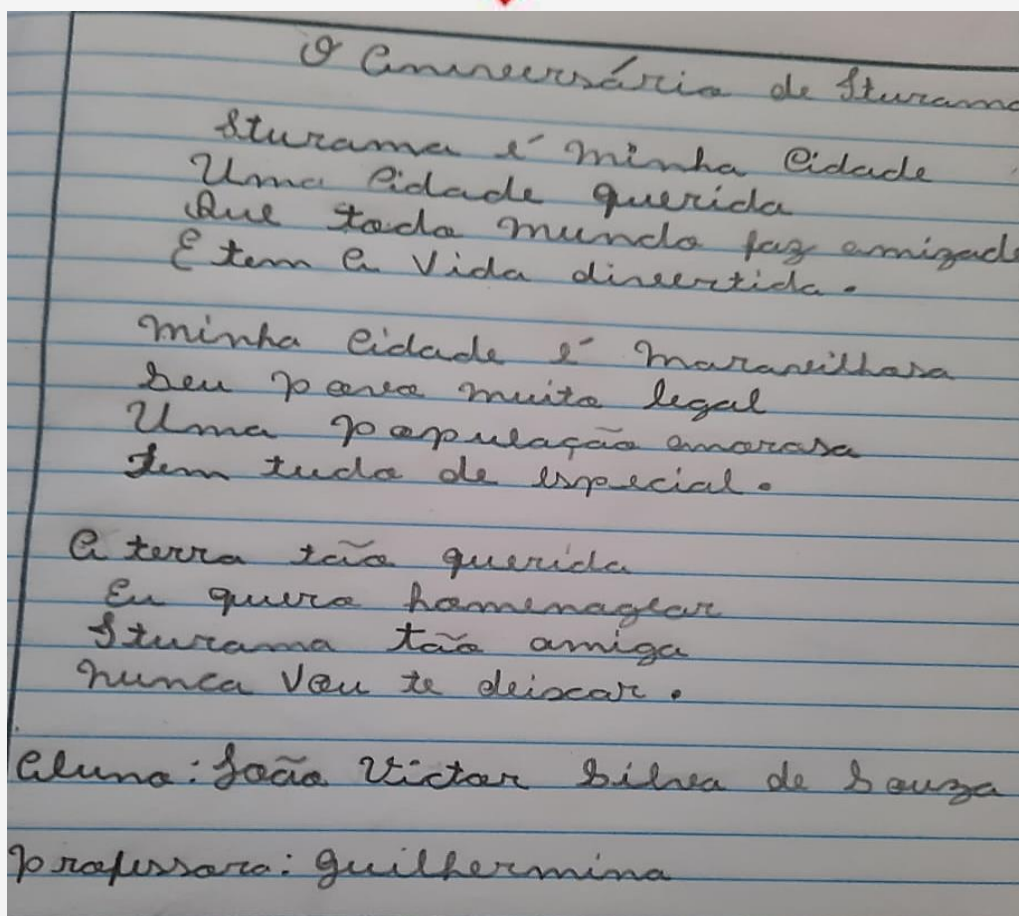 O Aniversário de Iturama
Iturama é minha cidade
Uma cidade querida
Que todo mundo faz amizade
E tem a vida divertida.
Minha cidade é maravilhosa
Seu povo muito legal
Uma população amorosa
Tem tudo de especial.
A terra tão querida
Eu quero homenagear
Iturama tão amiga
Nunca vou te deixar.
Aluno: João Victor Silva de Souza
Professora: Guilhermina